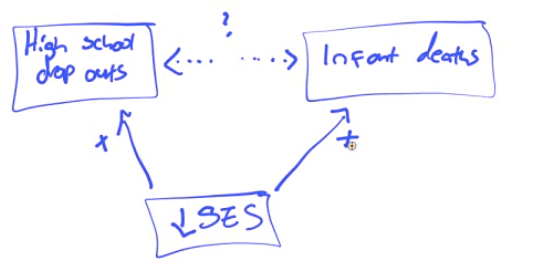 ?
High school
drop outs
Infant deaths
+
+
↓SES